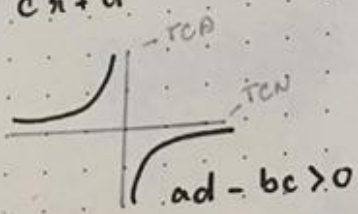 cx + d
TCĐ
TCN
ad - bc > 0